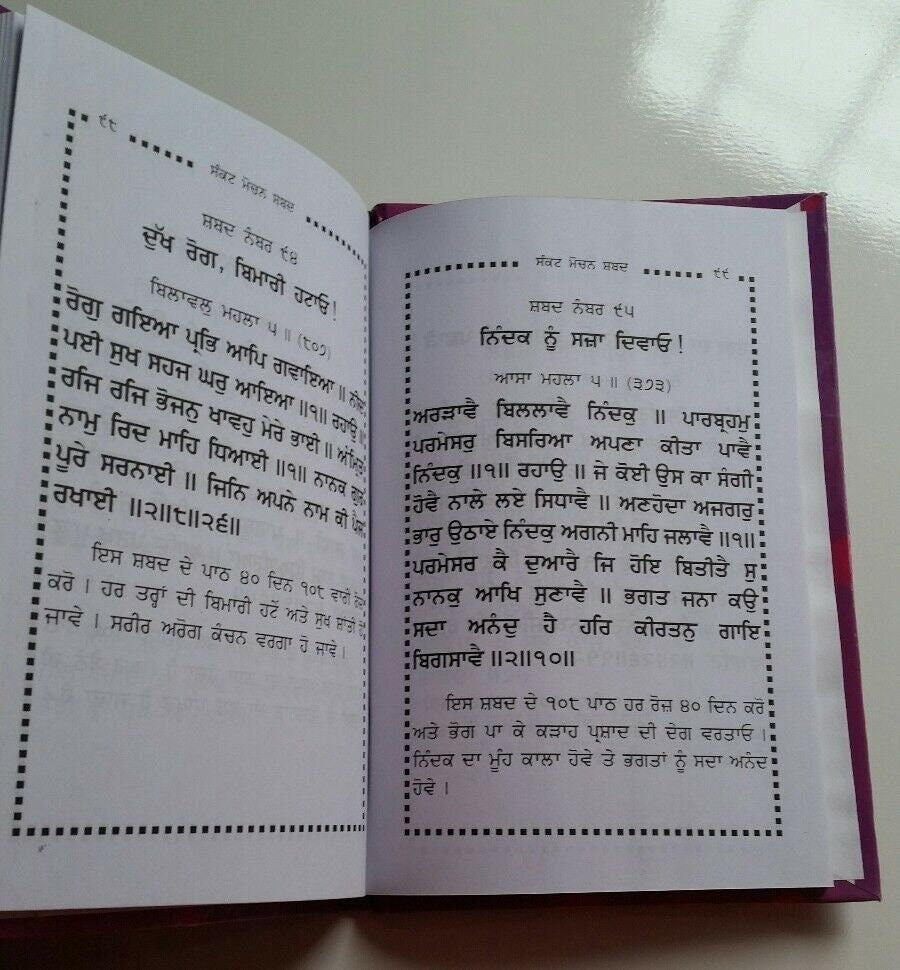 ੯੯
ਸੰਕਟ ਮੋਚਨ ਸ਼ਬਦ
ਸ਼ਬਦ ਨੰਬਰ ੯੪
ਦੁੱਖ ਰੋਗ, ਬਿਮਾਰੀ ਹਟਾਓ!
ਬਿਲਾਵਲੁ ਮਹਲਾ ੫ ॥ (੮੦੭)
ਰੋਗੁ ਗਇਆ ਪ੍ਰਭਿ ਆਪਿ ਗਵਾਇਆ ॥
ਪਈ ਸੁਖ ਸਹਜ ਘਰੁ ਆਇਆ ॥੧॥ ਰਹਾਉ ॥
ਰਜਿ ਰਜਿ ਭੋਜਨੁ ਖਾਵਹੁ ਮੇਰੇ ਭਾਈ ॥ ਅੰਮ੍ਰਿਤ
ਨਾਮੁ ਰਿਦ ਮਾਹਿ ਧਿਆਈ ॥੧॥ ਨਾਨਕ ਗੁਰ
ਪੂਰੇ ਸਰਨਾਈ ॥ ਜਿਨਿ ਅਪਨੇ ਨਾਮ ਕੀ ਪੈਜ
ਰਖਾਈ ॥੨॥੮॥੨੬॥
ਇਸ ਸ਼ਬਦ ਦੇ ਪਾਠ ੪੦ ਦਿਨ ੧੦੮ ਵਾਰੀ ਰੋਜ਼
ਕਰੋ । ਹਰ ਤਰ੍ਹਾਂ ਦੀ ਬਿਮਾਰੀ ਹਟੇਂ ਅਤੇ ਸੁਖ ਸ਼ਾਂਤੀ ਹੋ
ਜਾਵੇ । ਸਰੀਰ ਅਰੋਗ ਕੰਚਨ ਵਰਗਾ ਹੋ ਜਾਵੇ ।
ਸੰਕਟ ਮੋਚਨ ਸ਼ਬਦ
੯੯
ਸ਼ਬਦ ਨੰਬਰ ੯੫
ਨਿੰਦਕ ਨੂੰ ਸਜ਼ਾ ਦਿਵਾਓ !
ਆਸਾ ਮਹਲਾ ੫ ॥ (੩੭੩)
ਅਰੜਾਵੈ ਬਿਲਲਾਵੈ ਨਿੰਦਕੁ ॥ ਪਾਰਬ੍ਰਹਮੁ
ਪਰਮੇਸਰੁ ਬਿਸਰਿਆ ਅਪਣਾ ਕੀਤਾ ਪਾਵੈ
ਨਿੰਦਕੁ ॥੧॥ ਰਹਾਉ ॥ ਜੇ ਕੋਈ ਉਸ ਕਾ ਸੰਗੀ
ਹੋਵੈ ਨਾਲੇ ਲਏ ਸਿਧਾਵੈ ॥ ਅਣਹੋਦਾ ਅਜਗਰੁ
ਭਾਰੁ ਉਠਾਏ ਨਿੰਦਕੁ ਅਗਨੀ ਮਾਹਿ ਜਲਾਵੈ ॥੧॥
ਪਰਮੇਸਰ ਕੈ ਦੁਆਰੈ ਜਿ ਹੋਇ ਬਿਤੀਤੈ ਸੁ
ਨਾਨਕੁ ਆਖਿ ਸੁਣਾਵੈ ॥ ਭਗਤ ਜਨਾ ਕਉ
ਸਦਾ ਅਨੰਦੁ ਹੈ ਹਰਿ ਕੀਰਤਨੁ ਗਾਇ
ਬਿਗਸਾਵੈ ॥੨॥੧੦॥
ਇਸ ਸ਼ਬਦ ਦੇ ੧੦੮ ਪਾਠ ਹਰ ਰੋਜ਼ ੪੦ ਦਿਨ ਕਰੋ
ਅਤੇ ਭੋਗ ਪਾ ਕੇ ਕੜਾਹ ਪ੍ਰਸ਼ਾਦ ਦੀ ਦੇਗ ਵਰਤਾਓ ।
ਨਿੰਦਕ ਦਾ ਮੂੰਹ ਕਾਲਾ ਹੋਵੇ ਤੇ ਭਗਤਾਂ ਨੂੰ ਸਦਾ ਅਨੰਦ
ਹੋਵੇ ।